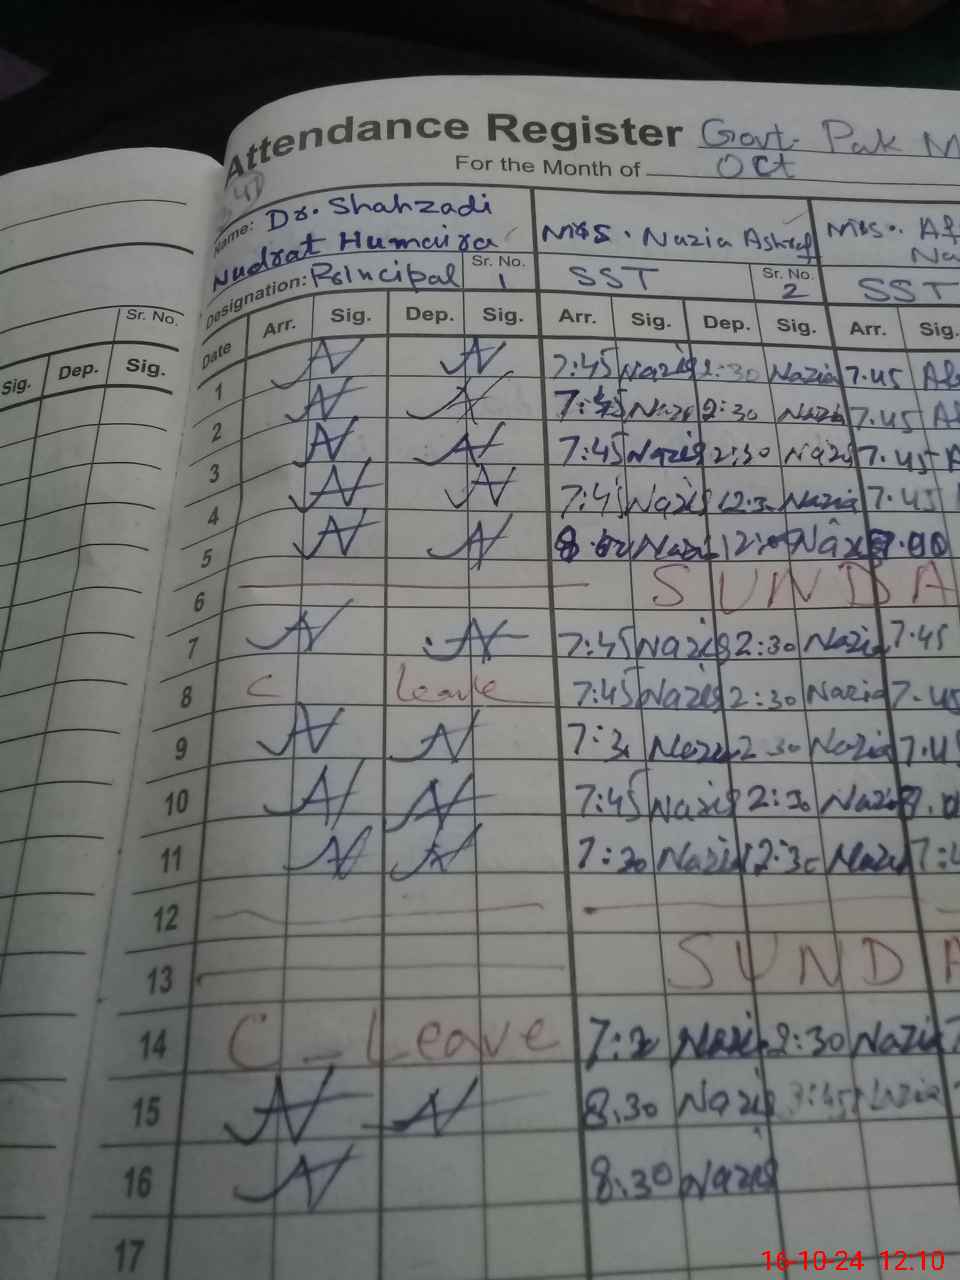 Attendance Register Govt. Pak M
For the Month of Oct
Name: Dr. Shahzadi
Nudrat Humaira
Mrs. Nazia Ashraf
Mrs. Af
Na
Designation: Principal Sr. No. 1 SST Sr. No. 2 SST
Sr. No.
Sig. Dep. Sig.
Date Arr. Sig. Dep. Sig. Arr. Sig. Dep. Sig. Arr. Sig.
1 7:45 Nazia 2:30 Nazia 7.45
2 7:45 Nazia 2:30 Nazia 7.45
3 7:45 Nazia 2:30 Nazia 7.45
4 7:45 Nazia 12:30 Nazia 7.45
5 Nazia Nazia
6 SUNDA
7 7:45 Nazia 2:30 Nazia 7.45
8 C Leave 7:45 Nazia 2:30 Nazia 7.45
9 Nazia 2 30 Nazia
10 7:45 Nazia 2:30 Nazia
11 7:30 Nazia 12:30 Nazia
12
13 SUNDA
14 C - Leave Nazia 2:30 Nazia
15 8.30 Nazia 3:45 Nazia
16 8.30 Nazia
17
16-10-24 12.10